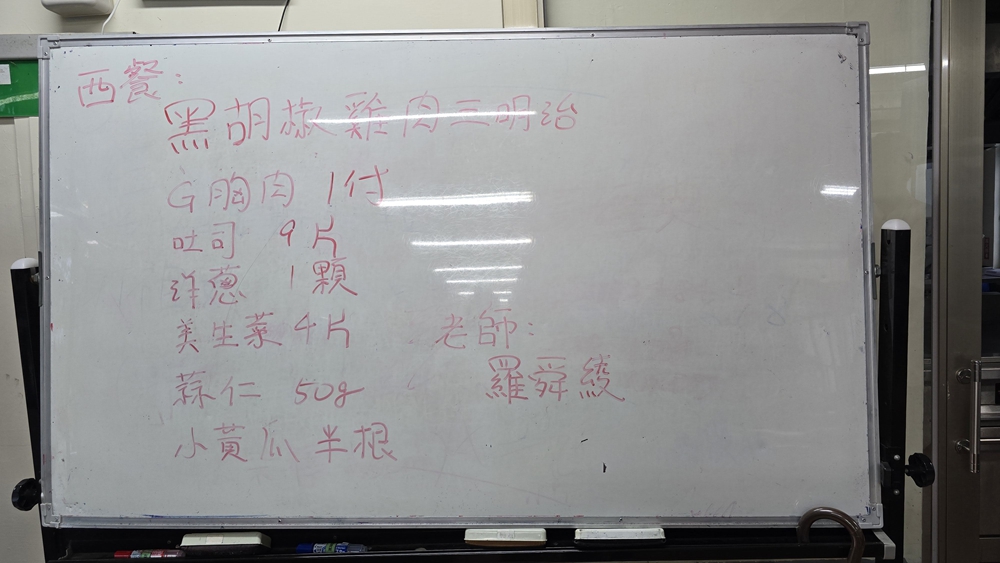 西餐：
黑胡椒雞肉三明治
G胸肉 1付
吐司 9片
洋蔥 1顆
美生菜 4片
老師：
蒜仁 50g
羅舜綾
小黃瓜 半根